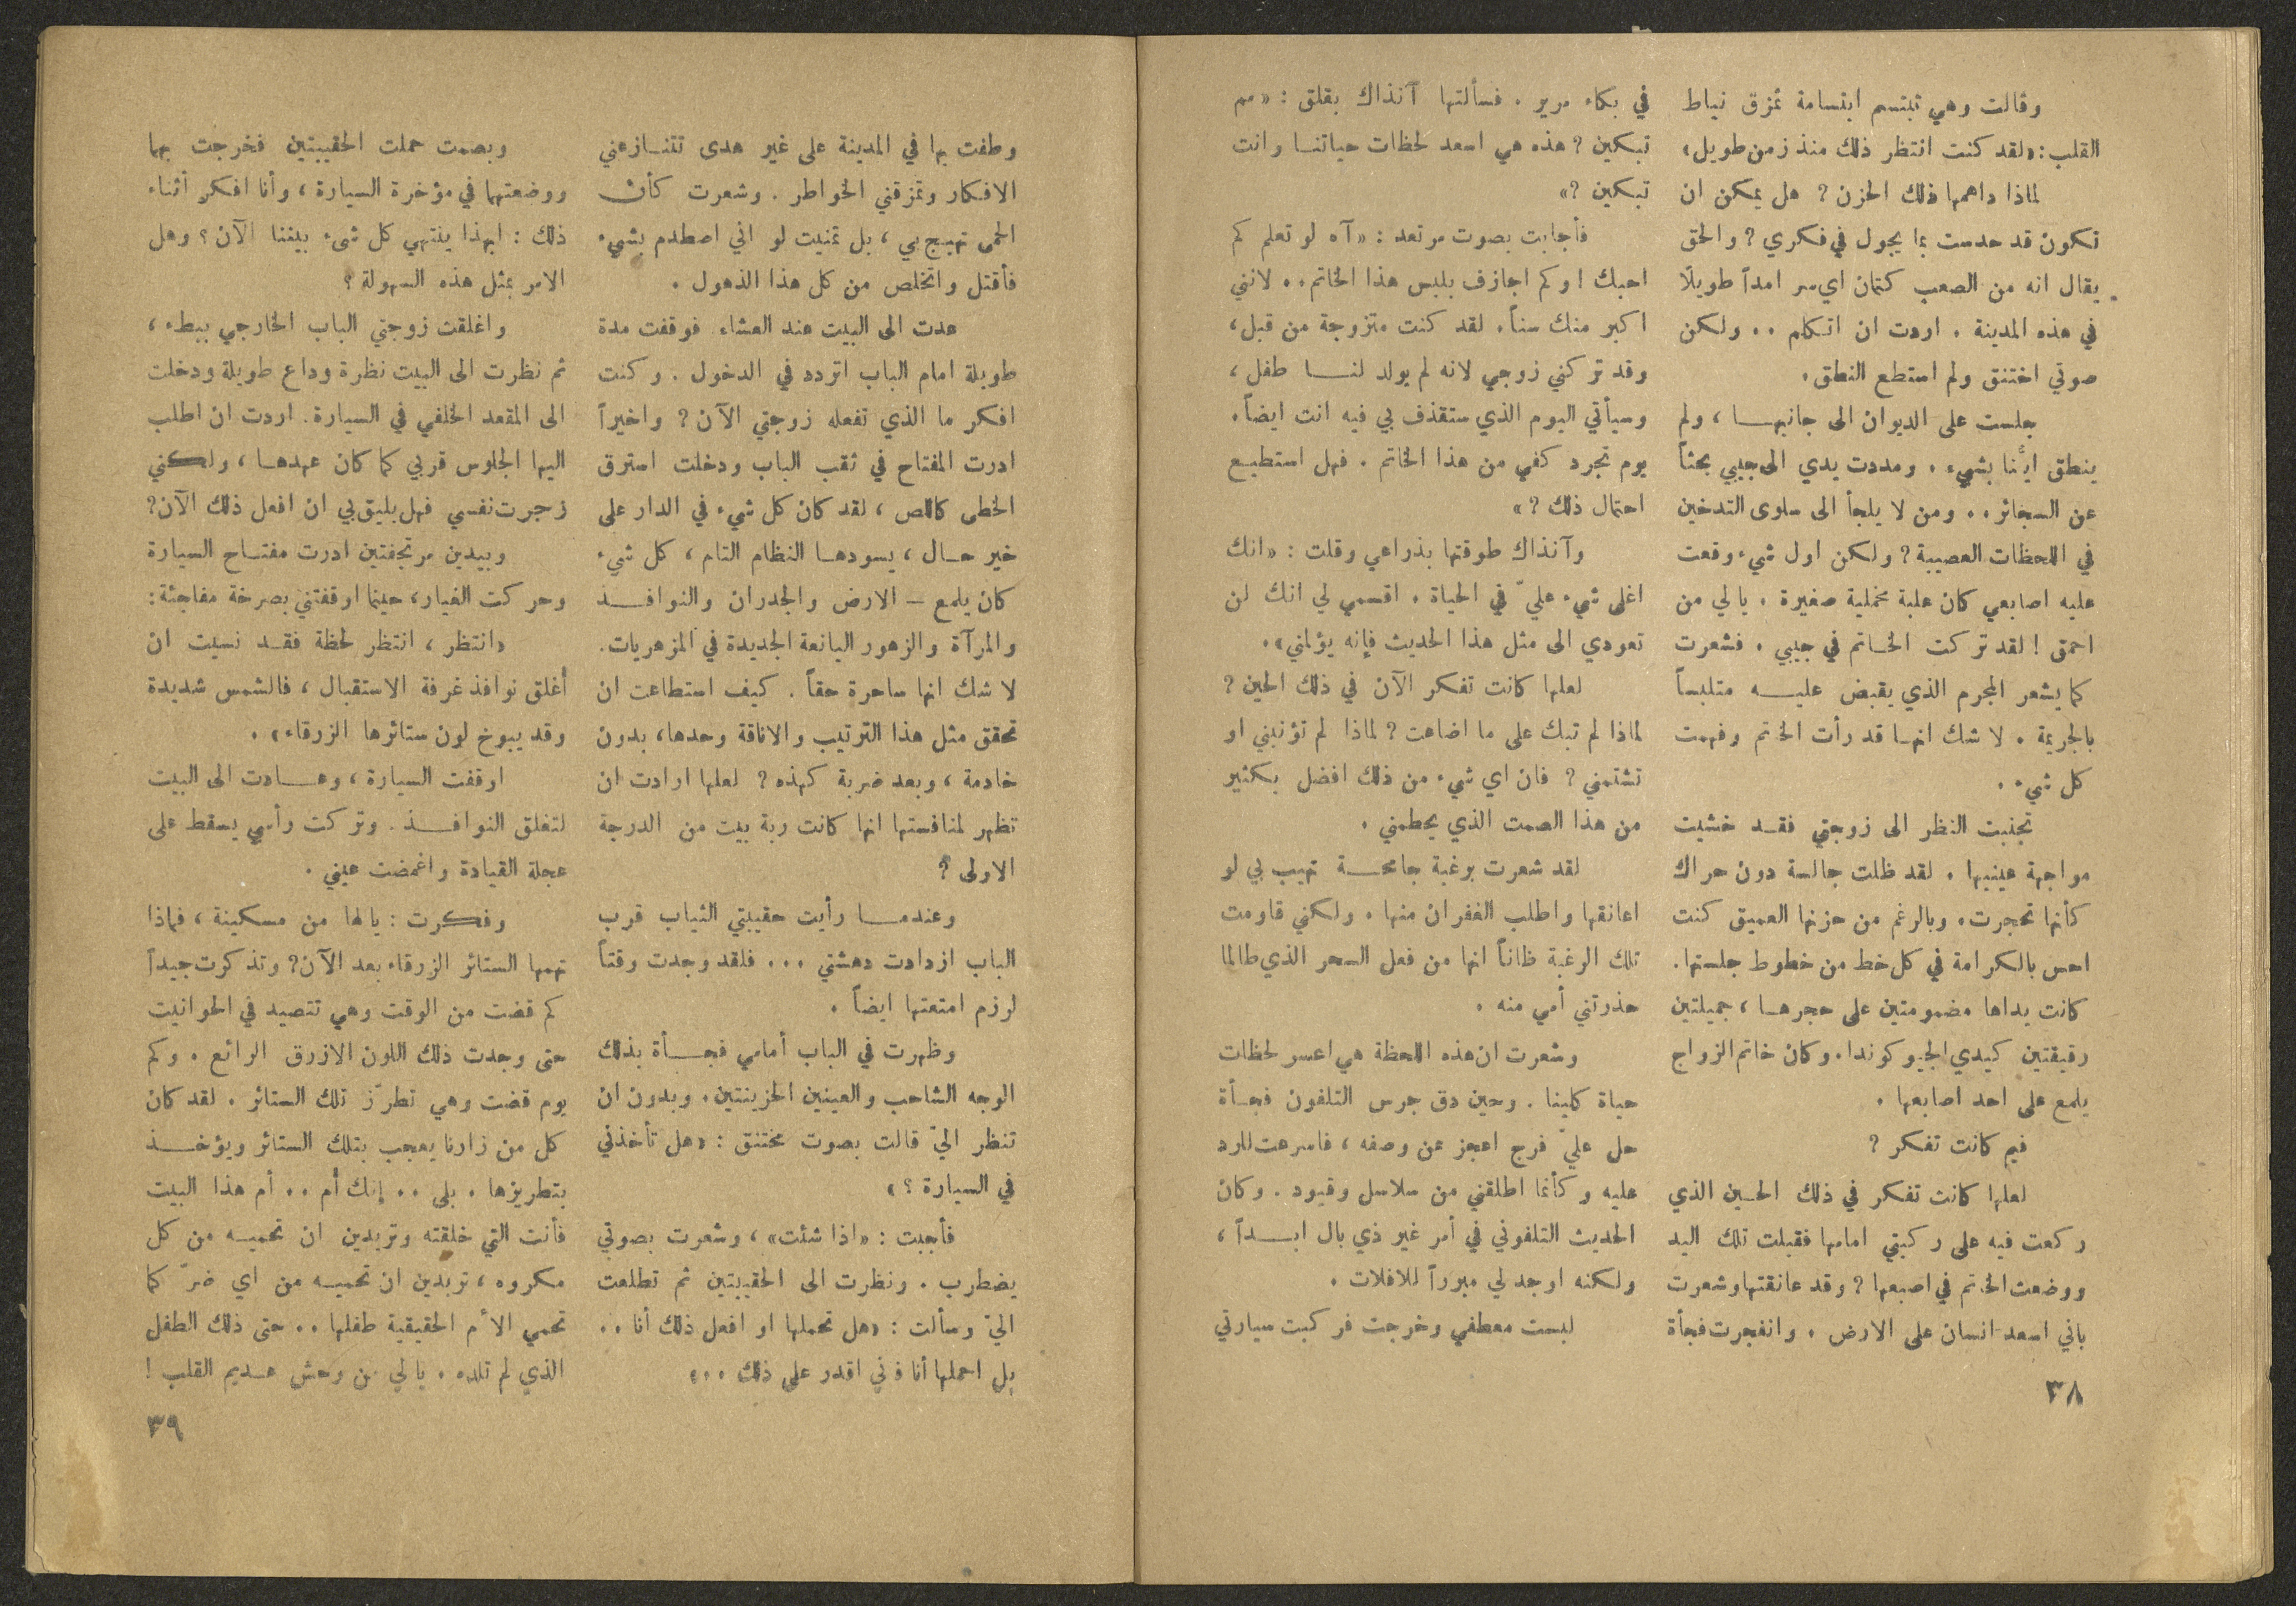 وقالت وهي تبتسم ابتسامة تمزق نياط
القلب: «لقد كنت انتظر ذلك منذ زمن طويل»
لماذا داهمها ذلك الحزن ? هل يمكن ان
تكون قد حدست بما يجول في فكري ? والحق
يقال انه من الصعب كتمان اي سر امداً طويلًا
في هذه المدينة . اردت ان اتكلم .. ولكن
صوتي اختنق ولم استطع النطق .
جلست على الديوان الى جانبها ، ولم
ينطق ايُّنا بشيء . ومددت يدي الى جيبي بحثاً
عن السجائر .. ومن لا يلجأ الى سلوى التدخين
في اللحظات العصيبة ? ولكن اول شيء وقعت
عليه اصابعي كان علبة مخملية صغيرة . يا لي من
احمق ! لقد تركت الخاتم في جيبي . فشعرت
كما يشعر المجرم الذي يقبض عليه متلبساً
بالجريمة . لا شك انها قد رأت الخاتم وفهمت
كل شيء .
تجنبت النظر الى زوجتي فقد خشيت
مواجهة عينيها . لقد ظلت جالسة دون حراك
كأنها تحجرت . وبالرغم من حزنها العميق كنت
احس بالكرامة في كل خط من خطوط جلستها .
كانت يداها مضمومتين على حجرها ، جميلتين
رقيقتين كيدي الجيوكوندا . وكان خاتم الزواج
يلمع على احد اصابعها .
فيم كانت تفكر ?
لعلها كانت تفكر في ذلك الحين الذي
ركعت فيه على ركبتي امامها فقبلت تلك اليد
ووضعت الخاتم في اصبعها ? وقد عانقتها وشعرت
باني اسعد انسان على الارض . وانفجرت فجأة
في بكاء مرير . فسألتها آنذاك بقلق : «مم
تبكين ? هذه هي اسعد لحظات حياتنا وانت
تبكين ?»
فأجابت بصوت مرتعد : «آه لو تعلم كم
احبك ! وكم اجازف بلبس هذا الخاتم .. لانني
اكبر منك سناً . لقد كنت متزوجة من قبل ،
وقد تركني زوجي لانه لم يولد لنا طفل ،
وسيأتي اليوم الذي ستقذف بي فيه انت ايضاً .
يوم تجرد كفي من هذا الخاتم . فهل استطيع
احتمال ذلك ?»
وآنذاك طوقتها بذراعي وقلت : «انك
اغلى شيء عليّ في الحياة . اقسمي لي انك لن
تعودي الى مثل هذا الحديث فإنه يؤلمني» .
لعلها كانت تفكر الآن في ذلك الحين ?
لماذا لم تبك على ما اضاعت ? لماذا لم تؤنبني او
تشتمني ? فان اي شيء من ذلك افضل بكثير
من هذا الصمت الذي يحطمني .
لقد شعرت برغبة جامحة تهيب بي لو
اعانقها واطلب الغفران منها . ولكني قاومت
تلك الرغبة ظاناً انها من فعل السحر الذي طالما
حذرتني أمي منه .
وشعرت ان هذه اللحظة هي اعسر لحظات
حياة كلينا . وحين دق جرس التلفون فجأة
حل عليّ فرج اعجز عن وصفه ، فاسرعت للرد
عليه وكأنما اطلقني من سلاسل وقيود . وكان
الحديث التلفوني في أمر غير ذي بال ابداً ،
ولكنه اوجد لي مبرراً للافلات .
لبست معطفي وخرجت فركبت سيارتي
٣٨
وطفت بها في المدينة على غير هدى تتنازعني
الافكار وتمزقني الخواطر . وشعرت كأن
الحمى تهيج بي ، بل تمنيت لو اني اصطدم بشيء
فأقتل واتخلص من كل هذا الذهول .
عدت الى البيت عند العشاء فوقفت مدة
طويلة امام الباب اتردد في الدخول . وكنت
افكر ما الذي تفعله زوجتي الآن ? واخيراً
ادرت المفتاح في ثقب الباب ودخلت استرق
الخطى كاللص ، لقد كان كل شيء في الدار على
خير حال ، يسودها النظام التام ، كل شيء
كان يلمع – الارض والجدران والنوافذ
والمرآة والزهور اليانعة الجديدة في المزهريات .
لا شك انها ساحرة حقاً . كيف استطاعت ان
تحقق مثل هذا الترتيب والاناقة وحدها ، بدون
خادمة ، وبعد ضربة كهذه ? لعلها ارادت ان
تظهر لمنافستها انها كانت ربة بيت من الدرجة
الاولى ?
وعندما رأيت حقيبتي الثياب قرب
الباب ازدادت دهشتي ... فلقد وجدت وقتاً
لرزم امتعتها ايضاً .
وظهرت في الباب أمامي فجأة بذلك
الوجه الشاحب والعينين الحزينتين . وبدون ان
تنظر اليّ قالت بصوت مختنق : «هل تأخذني
في السيارة ?»
فأجبت : «اذا شئت» ، وشعرت بصوتي
يضطرب . ونظرت الى الحقيبتين ثم تطلعت
اليّ وسألت : «هل تحملها او افعل ذلك أنا ..
بل احملها أنا فإني اقدر على ذلك ..»
وبصمت حملت الحقيبتين فخرجت بهما
ووضعتهما في مؤخرة السيارة ، وأنا افكر أثناء
ذلك : ابهذا ينتهي كل شيء بيننا الآن ? وهل
الامر بمثل هذه السهولة ?
واغلقت زوجتي الباب الخارجي ببطء ،
ثم نظرت الى البيت نظرة وداع طويلة ودخلت
الى المقعد الخلفي في السيارة . اردت ان اطلب
اليها الجلوس قربي كما كان عهدها ، ولكني
زجرت نفسي فهل يليق بي ان افعل ذلك الآن ?
وبيدين مرتجفتين ادرت مفتاح السيارة
وحركت الغيار ، حينما اوقفتني بصرخة مفاجئة :
«انتظر ، انتظر لحظة فقد نسيت ان
أغلق نوافذ غرفة الاستقبال ، فالشمس شديدة
وقد يبوخ لون ستائرها الزرقاء» .
اوقفت السيارة ، وعادت الى البيت
لتغلق النوافذ . وتركت رأسي يسقط على
عجلة القيادة واغمضت عيني .
وفكرت : يا لها من مسكينة ، فماذا
تهمها الستائر الزرقاء بعد الآن ? وتذكرت جيداً
كم قضت من الوقت وهي تتصيد في الحوانيت
حتى وجدت ذلك اللون الازرق الرائع . وكم
يوم قضت وهي تطرّز تلك الستائر . لقد كان
كل من زارنا يعجب بتلك الستائر ويؤخذ
بتطريزها . بلى .. إنك أم .. أم هذا البيت
فأنت التي خلقته وتريدين ان تحميه من كل
مكروه ، تريدين ان تحميه من اي ضرّ كما
تحمي الأم الحقيقية طفلها .. حتى ذلك الطفل
الذي لم تلده . يا لي من وحش عديم القلب !
٣٩